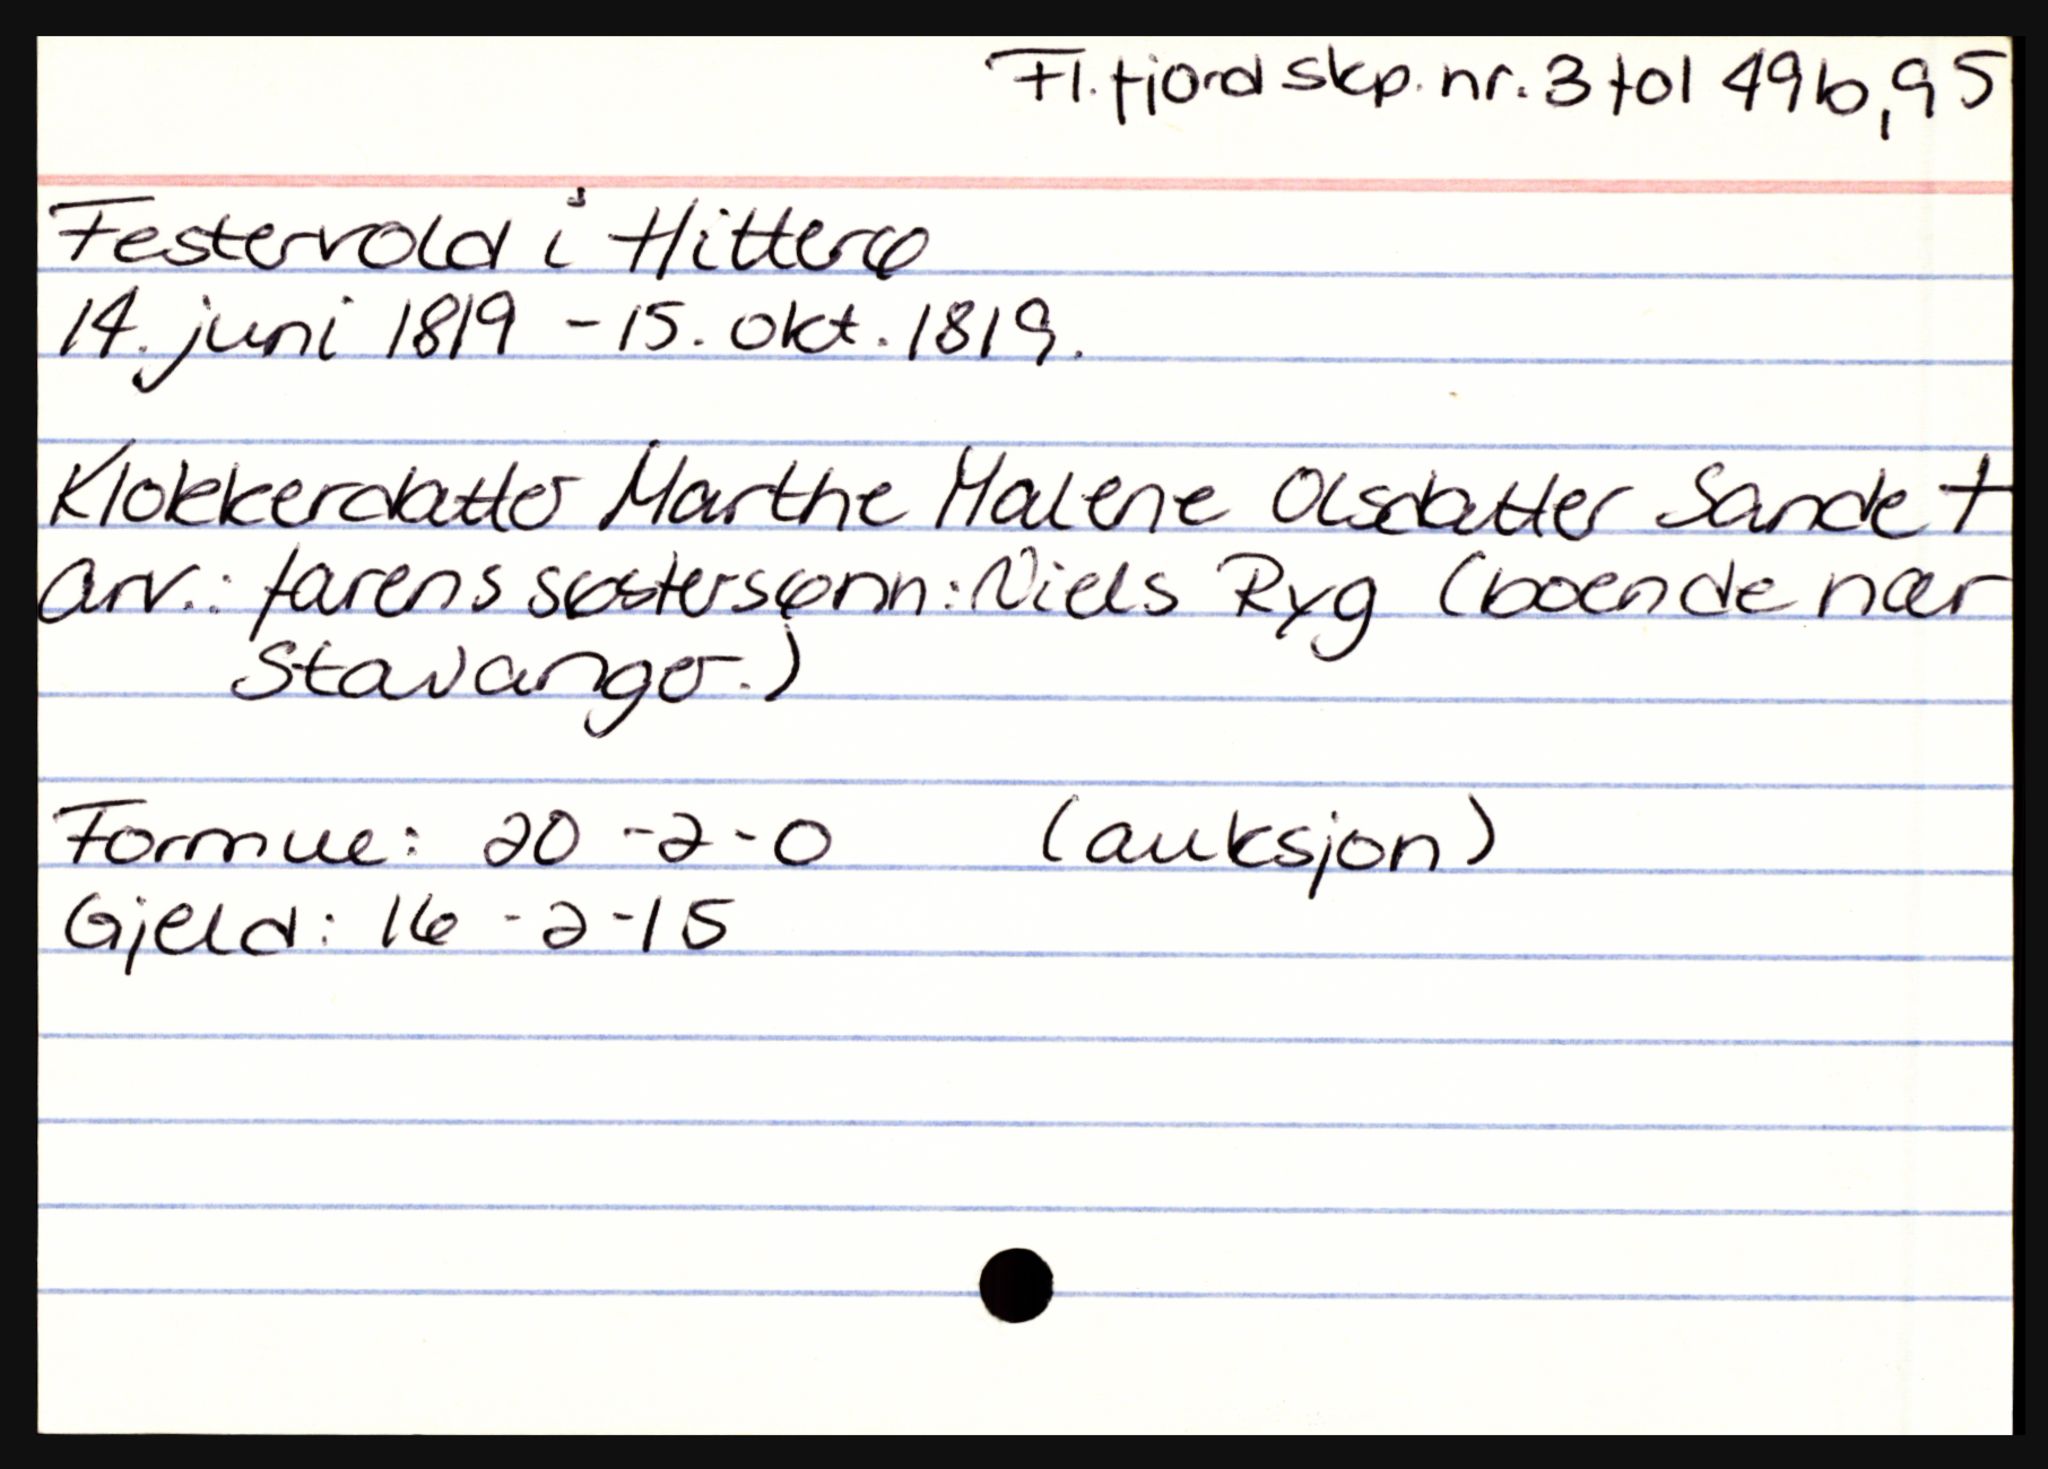 Fl.fjord skp. nr. 3 fol 49b, 95
Festervold i Hitterø
14. juni 1819 - 15. okt. 1819.
Klokkerdatter Marthe Malene Olsdatter Sande †
Arv.: farens søstersønn: Niels Ryg (boende nær
Stavanger.)
Formue: 20 - 2 - 0 (auksjon)
Gjeld: 16 - 2 - 15